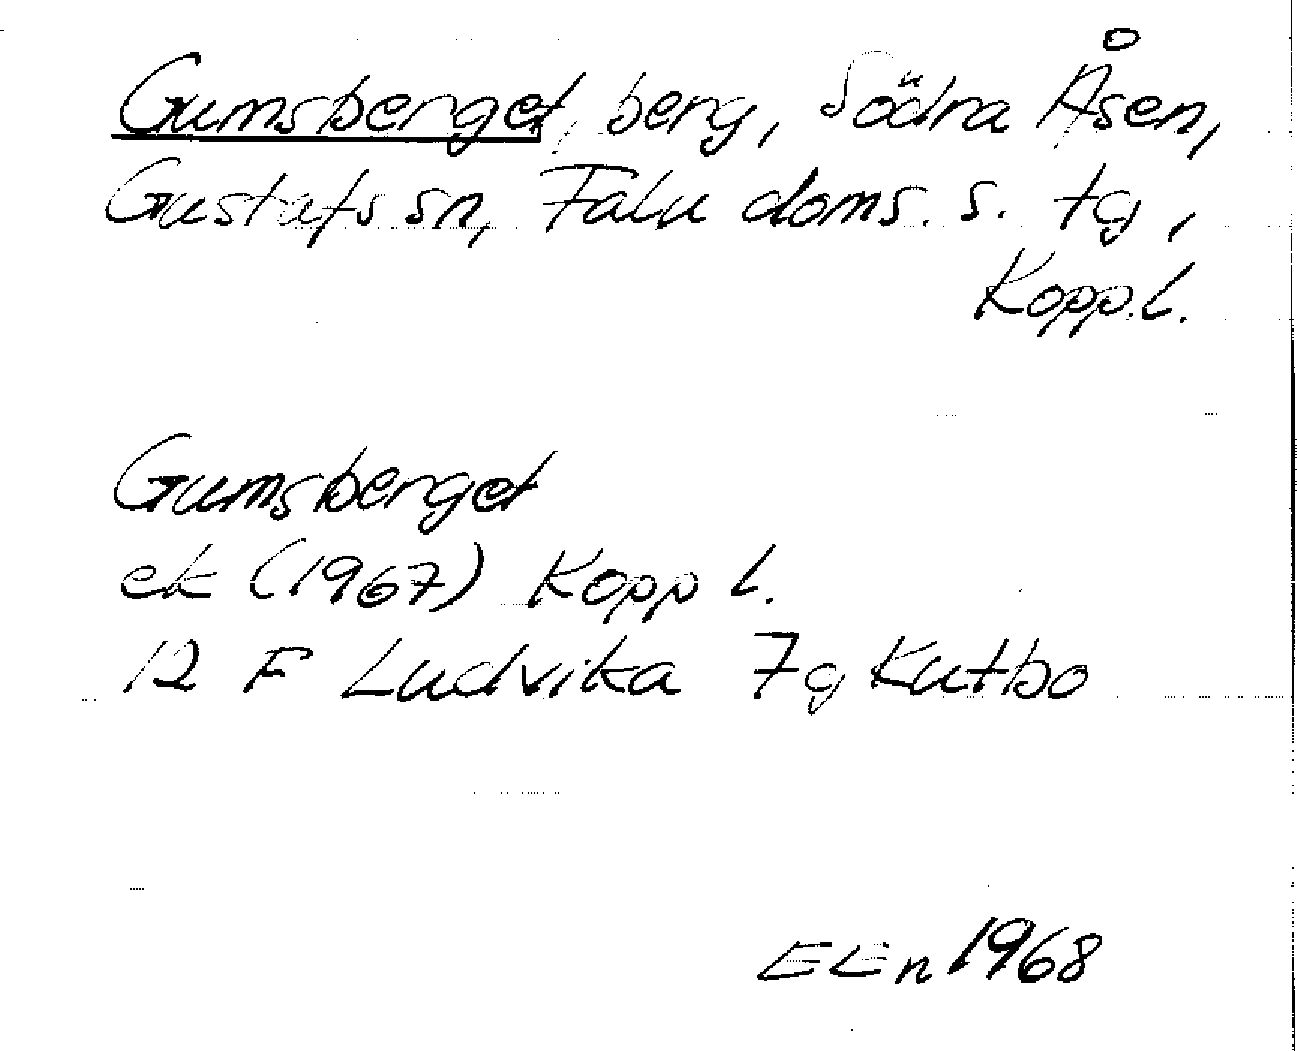 Gumsberget, berg, Södra Åsen,
Gustafs sn, Falu doms. s. tg,
Kopp.l.
Gumsberget
ek (1967) Kopp l.
12 F Ludvika 7g Kutbo
EEn 1968